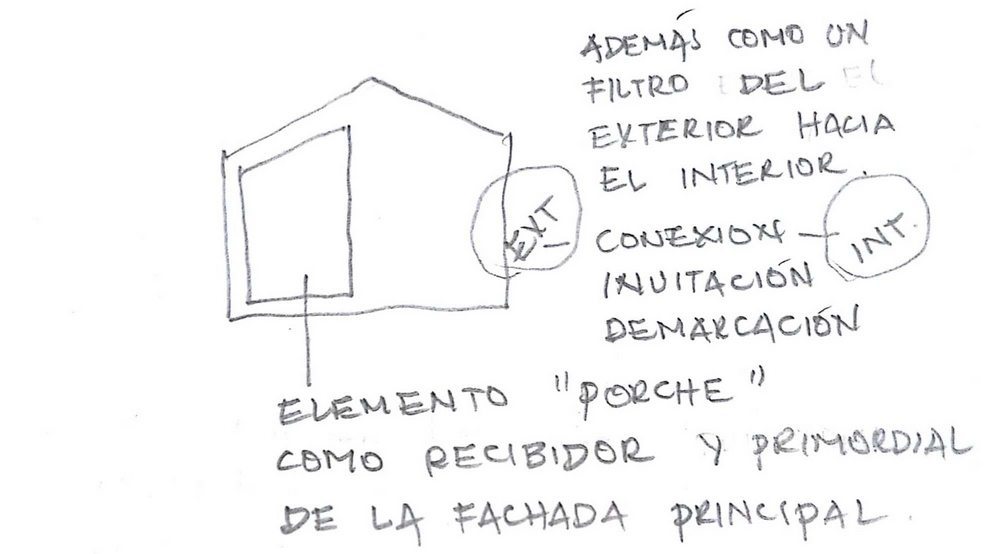 ADEMÁS COMO UN
FILTRO DEL
EXTERIOR HACIA
EL INTERIOR.
EXT – CONEXION – INT.
INVITACIÓN
DEMARCACIÓN
ELEMENTO "PORCHE"
COMO RECIBIDOR Y PRIMORDIAL
DE LA FACHADA PRINCIPAL.